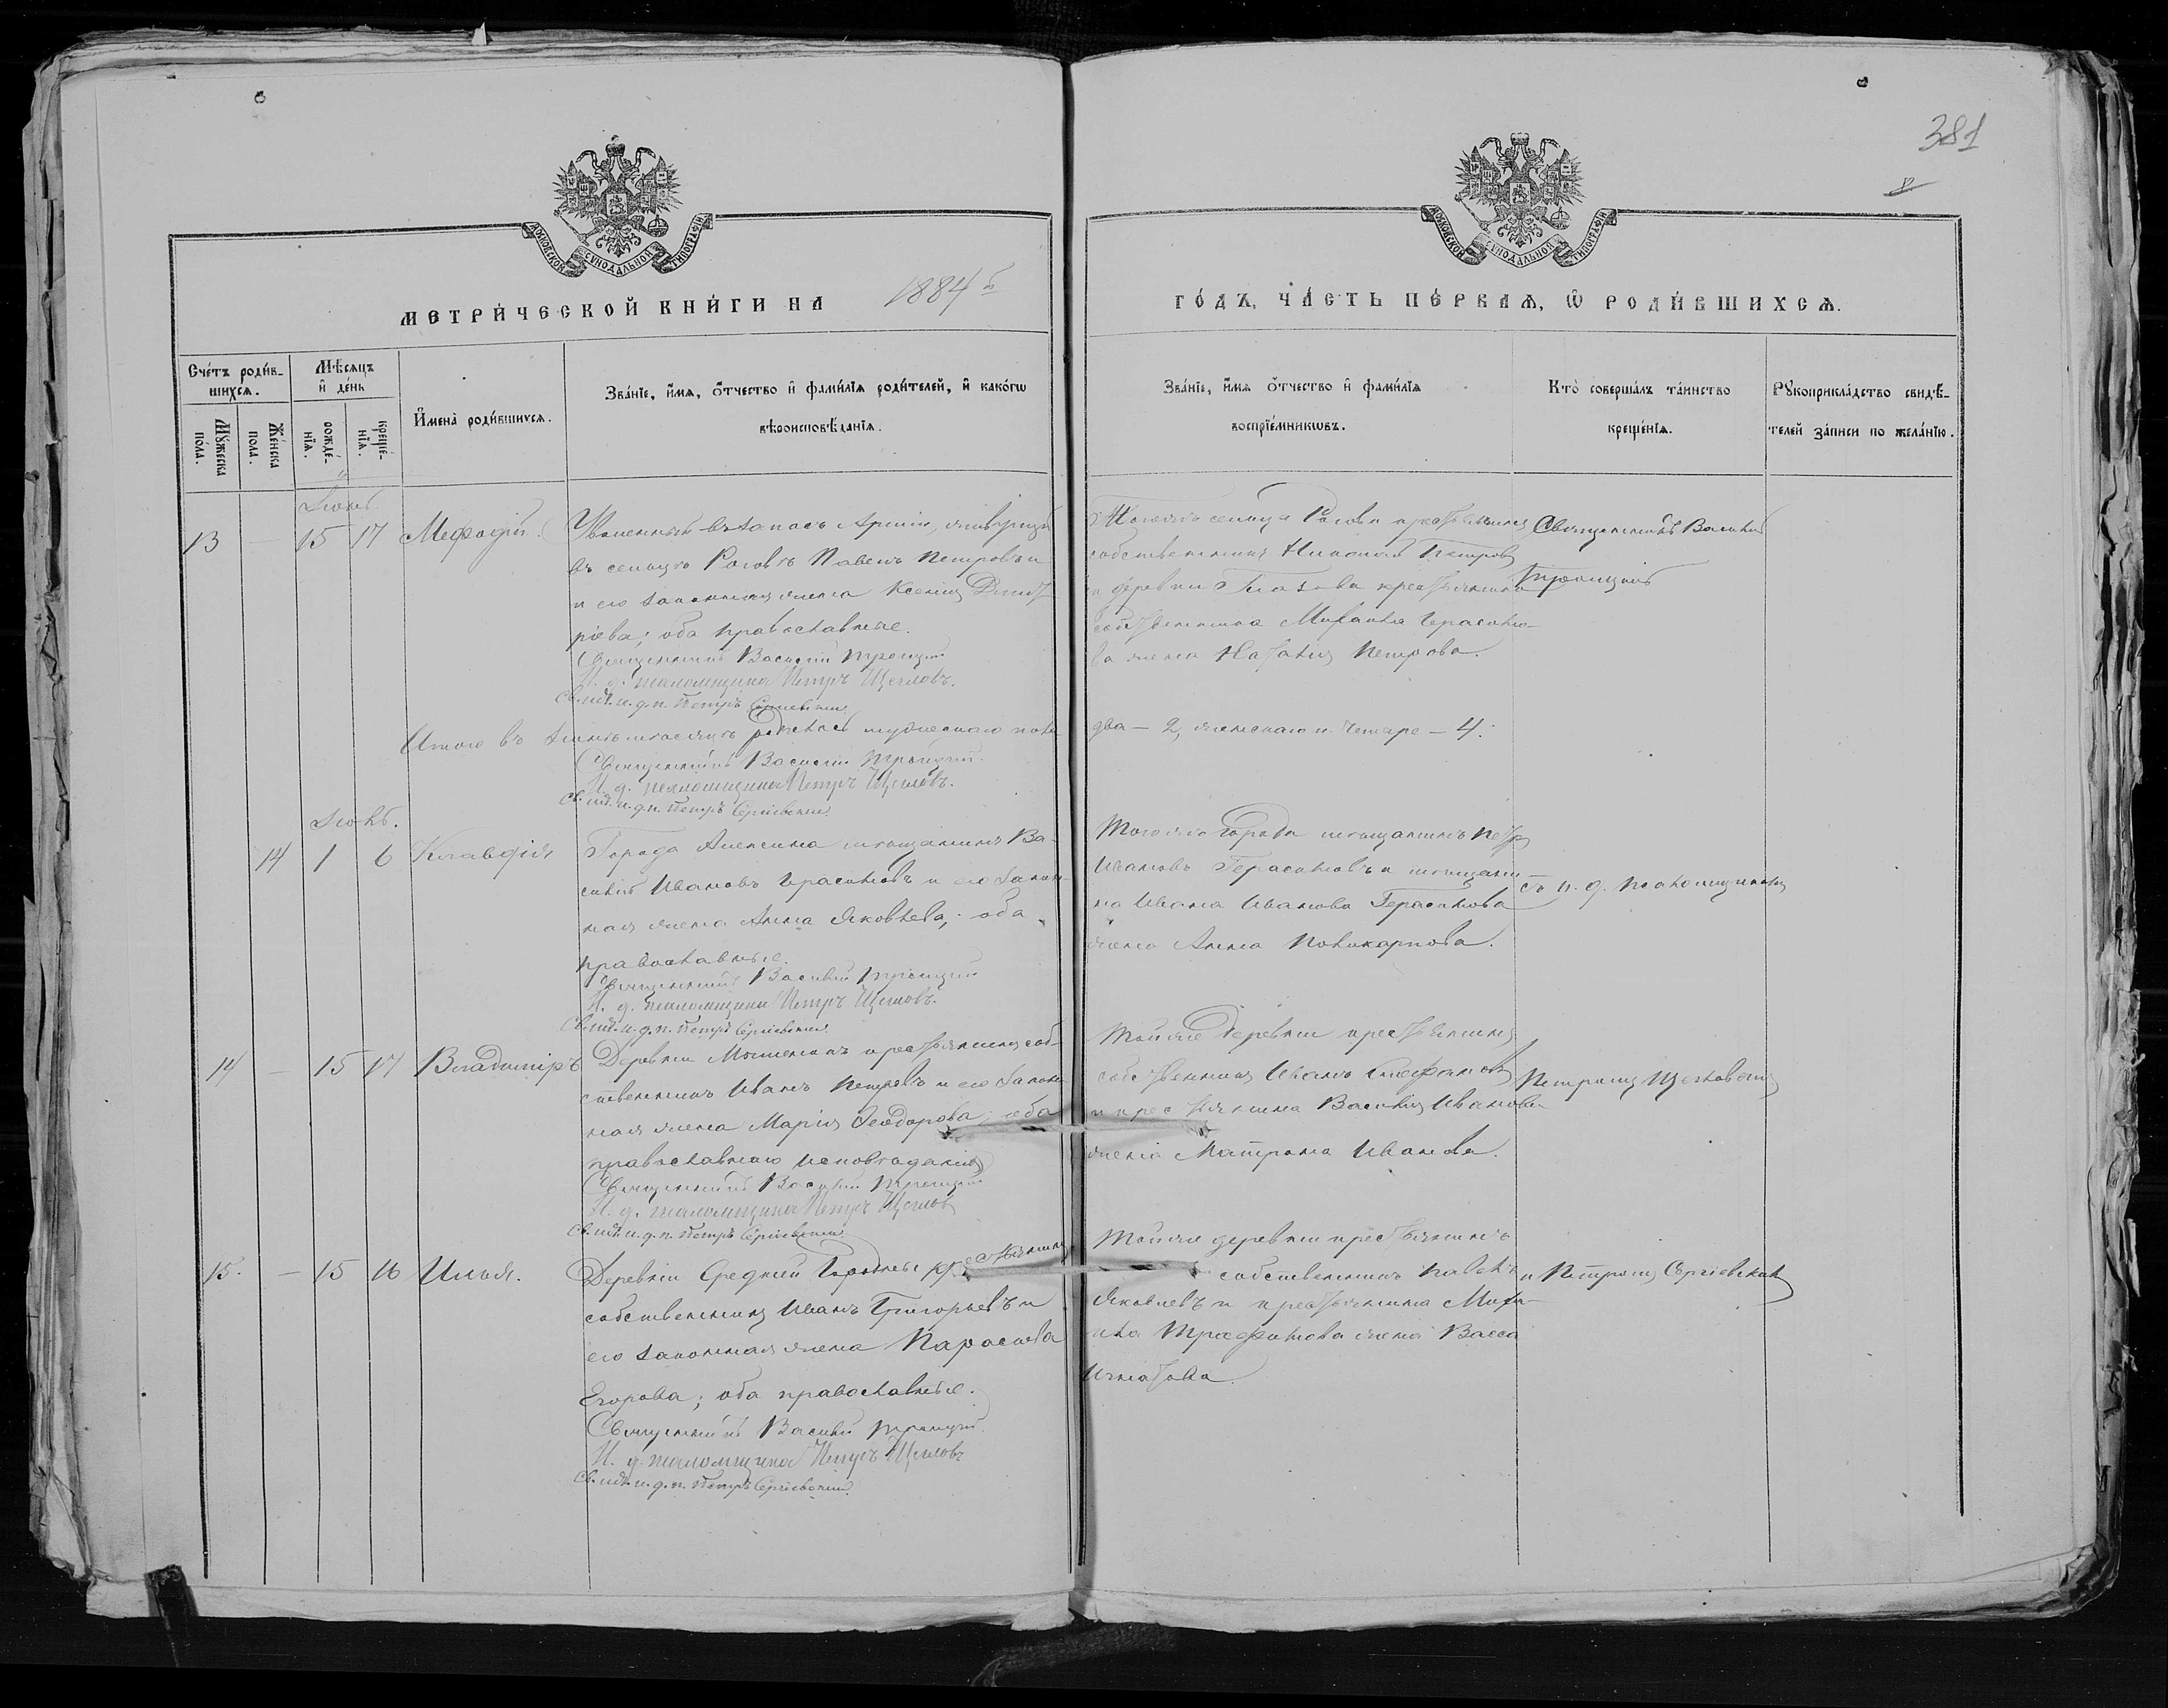 381
8.
МОСКОВСКОЙ СУНОДАЛЬНОЙ ТИПОГРАФІИ
МОСКОВСКОЙ СУНОДАЛЬНОЙ ТИПОГРАФІИ
МЕТРИ́ЧЕСКОЙ КНИ́ГИ НА 1884 й
ГО́ДЪ, ЧА́СТЬ ПЕ́РВАѦ, Ѿ РОДИ́ВШИХСѦ.
Сче́тъ роди́в-
шихсѧ.
Мꙋ́жеска по́ла.
Же́нска пола.
Мѣ́сѧцъ
и҆ де́нь
рожде́-
нїѧ.
креще́-
нїѧ.
И҆мена̀ роди́вшихсѧ.
Зва́нїе, и҆́мѧ, ѻ҆́тчество и҆ фами́лїѧ роди́телей, и҆ како́гѡ
вѣроисповѣ́данїѧ.
Зва́нїе, и҆́мѧ ѻ҆́тчество и҆ фами́лїѧ
воспрїе́мникѡвъ.
Кто̀ соверша́лъ та́инство
креще́нїѧ.
Рꙋкоприкла́дство свидѣ́-
телей за́писи по жела́нїю.
Іюнь.
13 — 15 17 Меѳодій.
Уволенный въ запасъ Арміи, живущій
въ сельцѣ Роговѣ Павелъ Петровъ и
и его законная жена Ксенія Димит
ріева; оба православные.
Священникъ Василій Троицкій
И. д. псаломщика Петръ Щегловъ.
Св. шт. и. д. п. Петръ Сергіевскій.
Тогоже сельца Рогова крестьянинъ
собственникъ Николай Петровъ
и деревни Глазова крестьянина
собственника Михаила Герасимо-
ва жена Наталія Петрова.
Священникъ Василій
Троицкій
Итого въ Іюнѣ мѣсяцѣ родилось мужескаго пола
два — 2, женскаго п. четыре — 4.
Священникъ Василій Троицкій.
И. д. псаломщика Петръ Щегловъ.
Св. шт. и. д. п. Петръ Сергіевскій.
Іюль.
14 1 6 Клавдія
Города Алексина мѣщанинъ Ва-
силій Ивановъ Герасимовъ и его закон-
ная жена Анна Яковлева; оба
православные.
Священникъ Василій Троицкій
И. д. псаломщика Петръ Щегловъ.
Св. шт. и. д. п. Петръ Сергіевскій.
Тогоже города мѣщанинъ Петръ
Ивановъ Герасимовъ и мѣщани-
на Ивана Иванова Герасимова
жена Анна Поликарпова.
съ и. д. псаломщиковъ
14 — 15 17 Владиміръ
Деревни крестьянинъ соб-
ственникъ Иванъ Петровъ и его закон-
ная жена Марія Ѳеодорова; оба
православнаго исповѣданія
Священникъ Василій Троицкій
И. д. псаломщика Петръ Щегловъ
Св. шт. и. д. п. Петръ Сергіевскій
Тойже деревни крестьянинъ
собственникъ Иванъ Стефановъ
и крестьянина Василія Иванова
жена Матрона Иванова.
Петромъ Щегловымъ
15. — 15 16 Илья.
Деревни Средней крестьянинъ
собственникъ Иванъ Григорьевъ и
его законная жена Параскева
Егорова; оба православные.
Священникъ Василій Троицкій.
И. д. псаломщика Петръ Щегловъ
Св. шт. и. д. п. Петръ Сергіевскій.
Тойже деревни крестьянинъ
собственникъ Павелъ
Яковлевъ и крестьянина Миха-
ила Трофимова жена Васса
Игнатова.
и Петромъ Сергіевскимъ